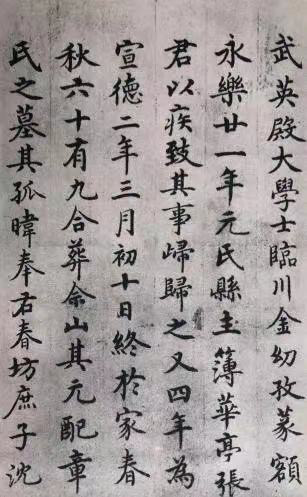 武英殿大學士臨川金幼孜篆額
永樂廿一年元氏縣主簿華亭張
君以疾致其事歸歸之又四年為
宣德二年三月初十日終於家春
秋六十有九合葬佘山其元配章
氏之墓其孤暐奉右春坊庶子沈